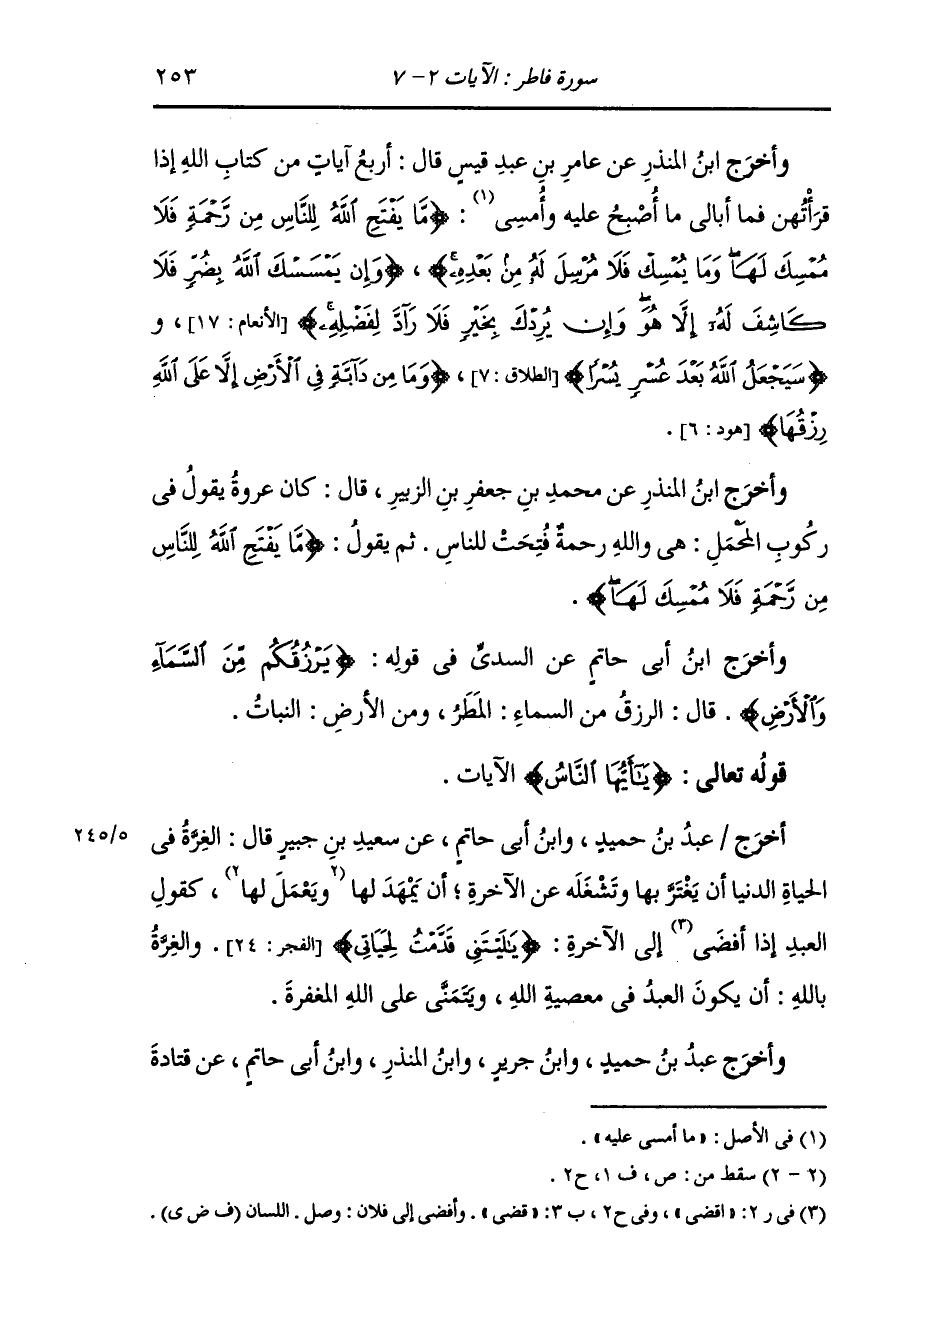 سورة فاطر : الآيات ٢ - ٧ ٢٥٣
وأخرَج ابنُ المنذرِ عن عامرِ بنِ عبدِ قيسٍ قال : أربعُ آياتٍ من كتابِ اللهِ إذا
قرَأْتُهن فما أبالى ما أُصْبِحُ عليه وأُمسِى(١) : ﴿مَّا يَفْتَحِ ٱللَّهُ لِلنَّاسِ مِن رَّحْمَةٍ فَلَا
مُمْسِكَ لَهَاۖ وَمَا يُمْسِكْ فَلَا مُرْسِلَ لَهُۥ مِنۢ بَعْدِهِۦ﴾ ، ﴿وَإِن يَمْسَسْكَ ٱللَّهُ بِضُرٍّ فَلَا
كَاشِفَ لَهُۥٓ إِلَّا هُوَۖ وَإِن يُرِدْكَ بِخَيْرٍ فَلَا رَآدَّ لِفَضْلِهِۦ﴾ [الأنعام : ١٧] ، و
﴿سَيَجْعَلُ ٱللَّهُ بَعْدَ عُسْرٍ يُسْرًا﴾ [الطلاق : ٧] ، ﴿وَمَا مِن دَآبَّةٍ فِى ٱلْأَرْضِ إِلَّا عَلَى ٱللَّهِ
رِزْقُهَا﴾ [هود : ٦] .
وأخرَج ابنُ المنذرِ عن محمدِ بنِ جعفرِ بنِ الزبيرِ ، قال : كان عروةُ يقولُ فى
ركُوبِ المَحْمَلِ : هى واللهِ رحمةٌ فُتِحَتْ للناسِ . ثم يقولُ : ﴿مَّا يَفْتَحِ ٱللَّهُ لِلنَّاسِ
مِن رَّحْمَةٍ فَلَا مُمْسِكَ لَهَاۖ﴾ .
وأخرَج ابنُ أبى حاتمٍ عن السدىِّ فى قولِه : ﴿يَرْزُقُكُم مِّنَ ٱلسَّمَآءِ
وَٱلْأَرْضِ﴾ . قال : الرزقُ من السماءِ : المَطَرُ ، ومن الأرضِ : النباتُ .
قولُه تعالى : ﴿يَٰٓأَيُّهَا ٱلنَّاسُ﴾ الآيات .
أخرَج / عبدُ بنُ حميدٍ ، وابنُ أبى حاتمٍ ، عن سعيدِ بنِ جبيرٍ قال : الغِرَّةُ فى ٢٤٥/٥
الحياةِ الدنيا أن يَغْتَرَّ بها وتَشْغَلَه عن الآخرةِ ؛ أن يَمْهَدَ لها (٢ويَعْمَلَ لها٢) ، كقولِ
العبدِ إذا أفضَى(٣) إلى الآخرةِ : ﴿يَٰلَيْتَنِى قَدَّمْتُ لِحَيَاتِى﴾ [الفجر : ٢٤] . والغِرَّةُ
باللهِ : أن يكونَ العبدُ فى معصيةِ اللهِ ، ويَتَمَنَّى على اللهِ المغفرةَ .
وأخرَج عبدُ بنُ حميدٍ ، وابنُ جريرٍ ، وابنُ المنذرِ ، وابنُ أبى حاتمٍ ، عن قتادةَ
(١) فى الأصل : «ما أمسى عليه» .
(٢ - ٢) سقط من : ص ، ف ١، ح٢ .
(٣) فى ر ٢: «اقضى» ، وفى ح٢ ، ب ٣: «قضى» . وأفضى إلى فلان : وصل . اللسان (ف ض ى) .